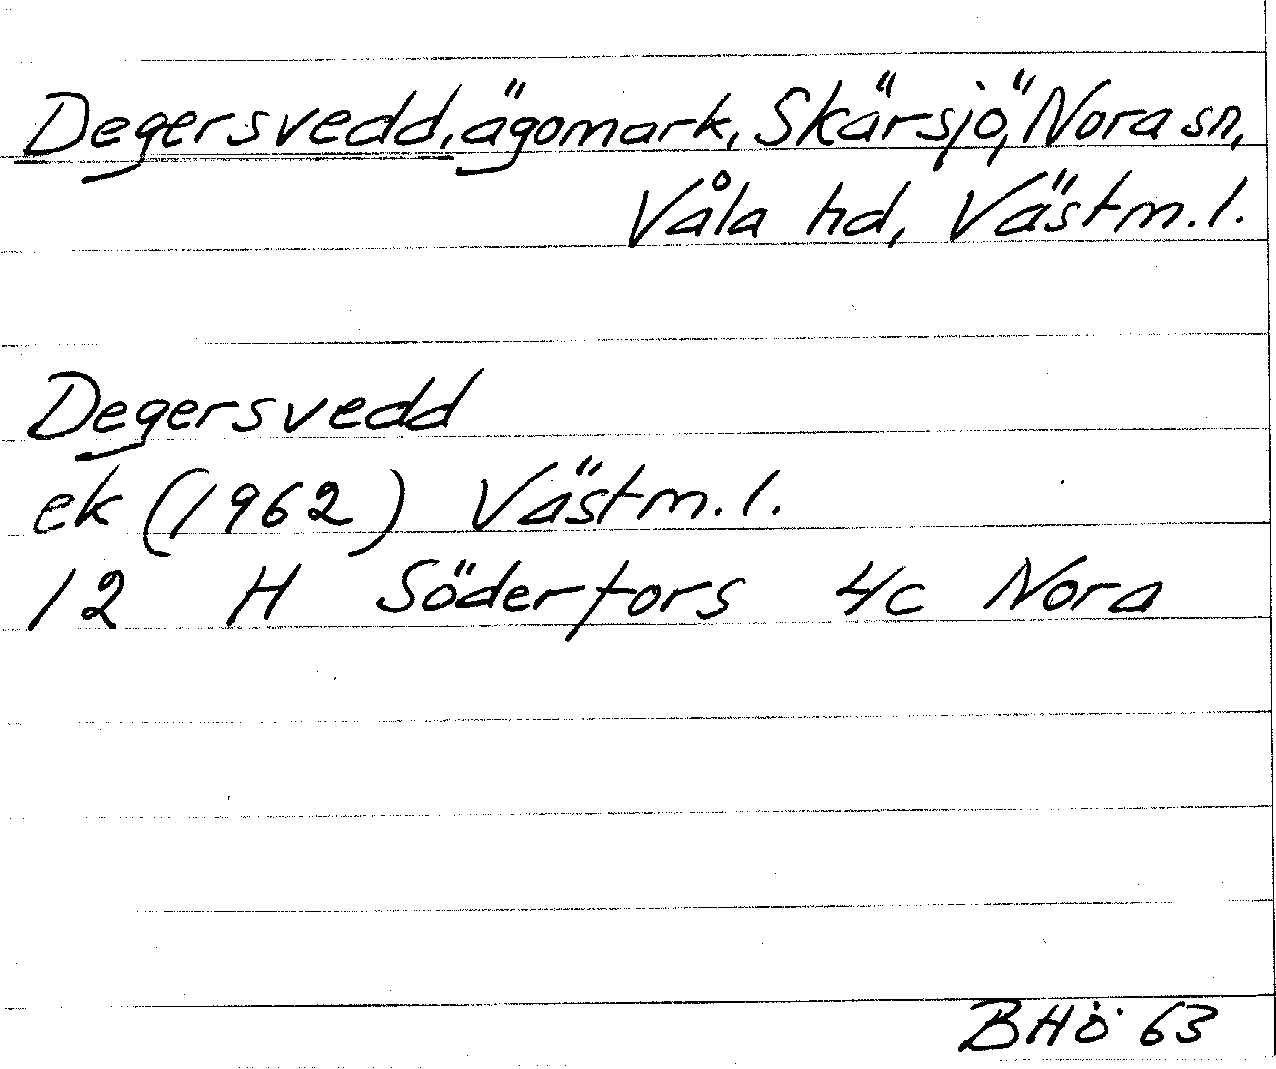 Degersvedd, ägomark, Skärsjö, Nora sn,
Våla hd, Västm. l.
Degersvedd
ek (1962) Västm. l.
12 H Söderfors 4c Nora
BHö 63